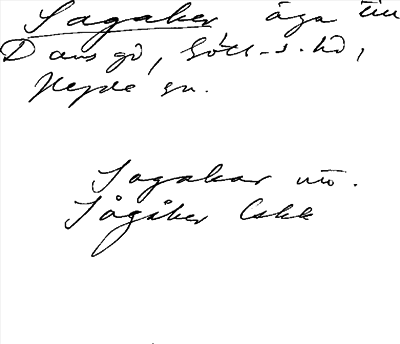 Sagaker äga till
Dansgd, Götl-s. hd,
Hejde sn.
Sagakar uttr.
Sågåker Cskk